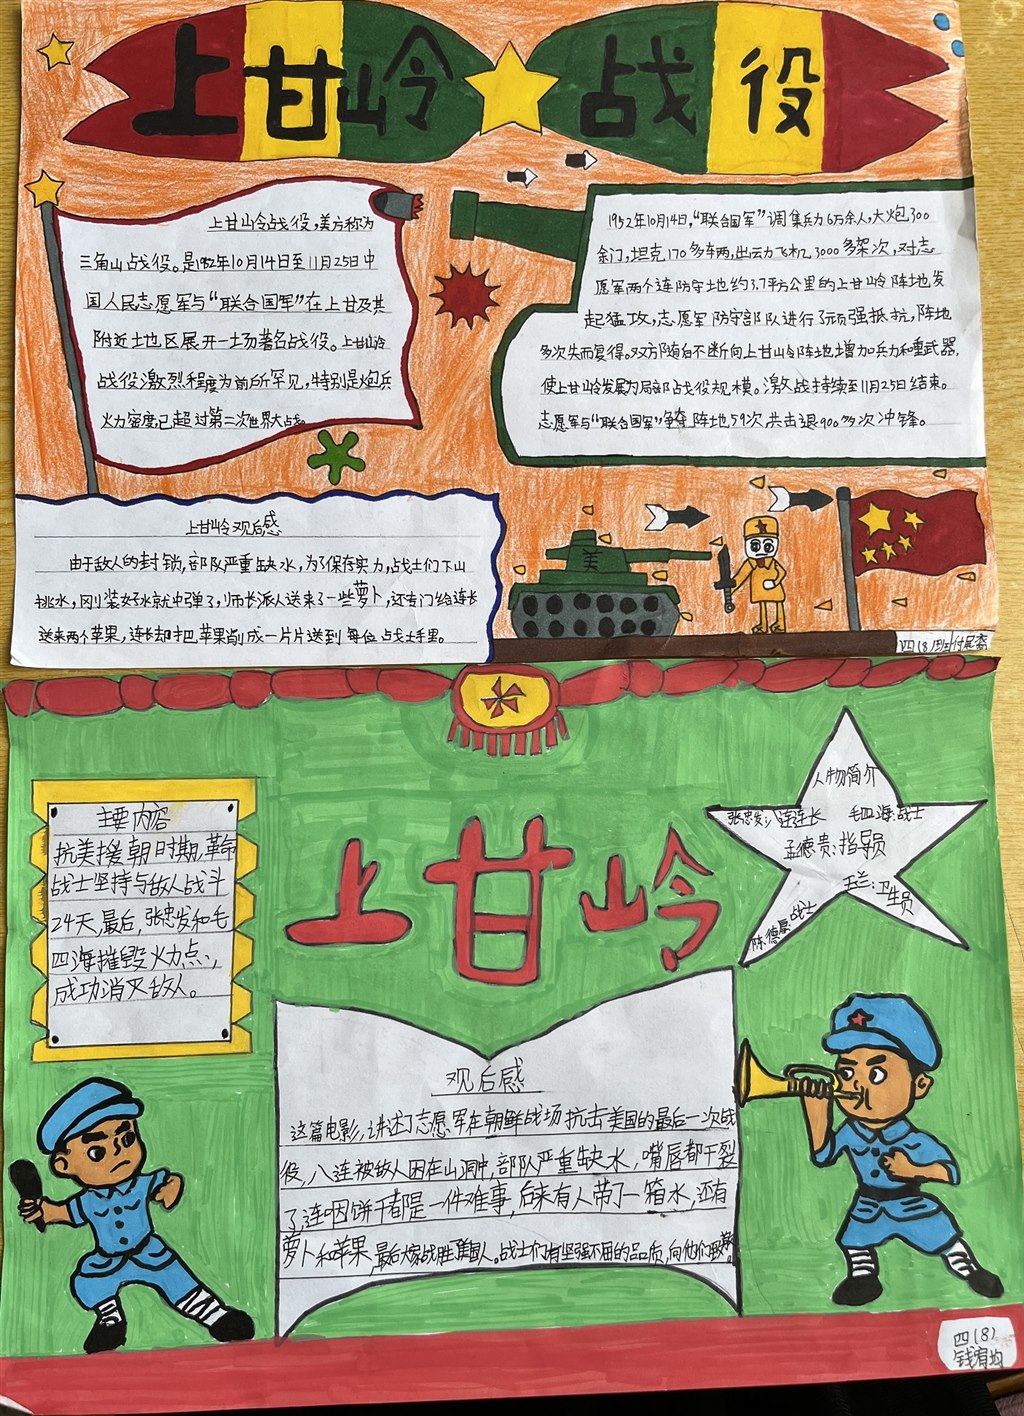 上甘岭 战役
上甘岭战役,美方称为
三角山战役。是1952年10月14日至11月25日中
国人民志愿军与“联合国军”在上甘及其
附近土地区展开一场著名战役。上甘岭
战役激烈程度为前所罕见,特别是炮兵
火力密度已超过第二次世界大战。
1952年10月14日,“联合国军”调集兵力6万余人,大炮300
余门,坦克170多车两,出动力飞机3000多架次,对志
愿军两个连防守地约3.7平方公里的上甘岭阵地发
起猛攻,志愿军防守部队进行了顽强抵抗,阵地
多次失而复得。双方随白不断向上甘岭阵地增加兵力和重武器,
使上甘岭发展为局部战役规模。激战持续到11月25日结束。
志愿军与“联合国军”争夺阵地59次,共击退900多次冲锋。
上甘岭观后感
由于敌人的封锁,部队严重缺水,为了保存实力,战士们下山
挑水,刚装好水就中弹了,师长派人送来了一些萝卜,还专门给连长
送来两个苹果,连长却把苹果削成一片片送到每位战士手里。
美
四(8)
主要内容
抗美援朝时期,革命
战士坚持与敌人战斗
24天,最后,张忠发和毛
四海摧毁火力点,
成功消灭敌人。
上甘岭
人物简介
张忠发:八连连长 毛四海:战士
孟德贵:指导员
王兰:卫生员
陈德厚:战士
观后感
这篇电影,讲述了志愿军在朝鲜战场抗击美国的最后一次战
役,八连被敌人困在山洞中,部队严重缺水,嘴唇都干裂
了,连咽饼干都是一件难事,后来有人带了一箱水,还有
萝卜和苹果,最后战胜了美国人。战士们有坚强不屈的品质,向他们致敬。
四(8)
钱宥均